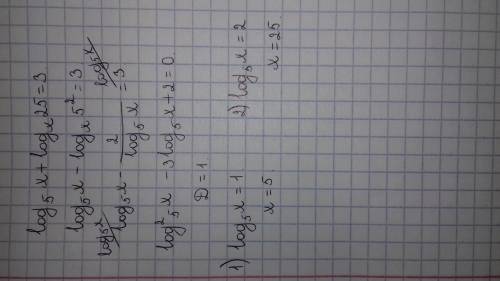 log₅x + logₓ25 = 3
log₅x - logₓ5² = 3
log₅x - 2/log₅x = 3
log₅x log₅x
log²₅x - 3log₅x + 2 = 0
D = 1
1) log₅x = 1 2) log₅x = 2
x = 5 x = 25